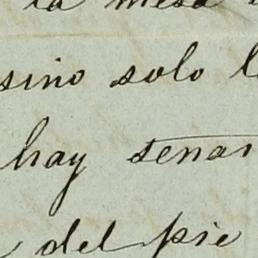 la mesa
sino solo l
hay senar
del pie